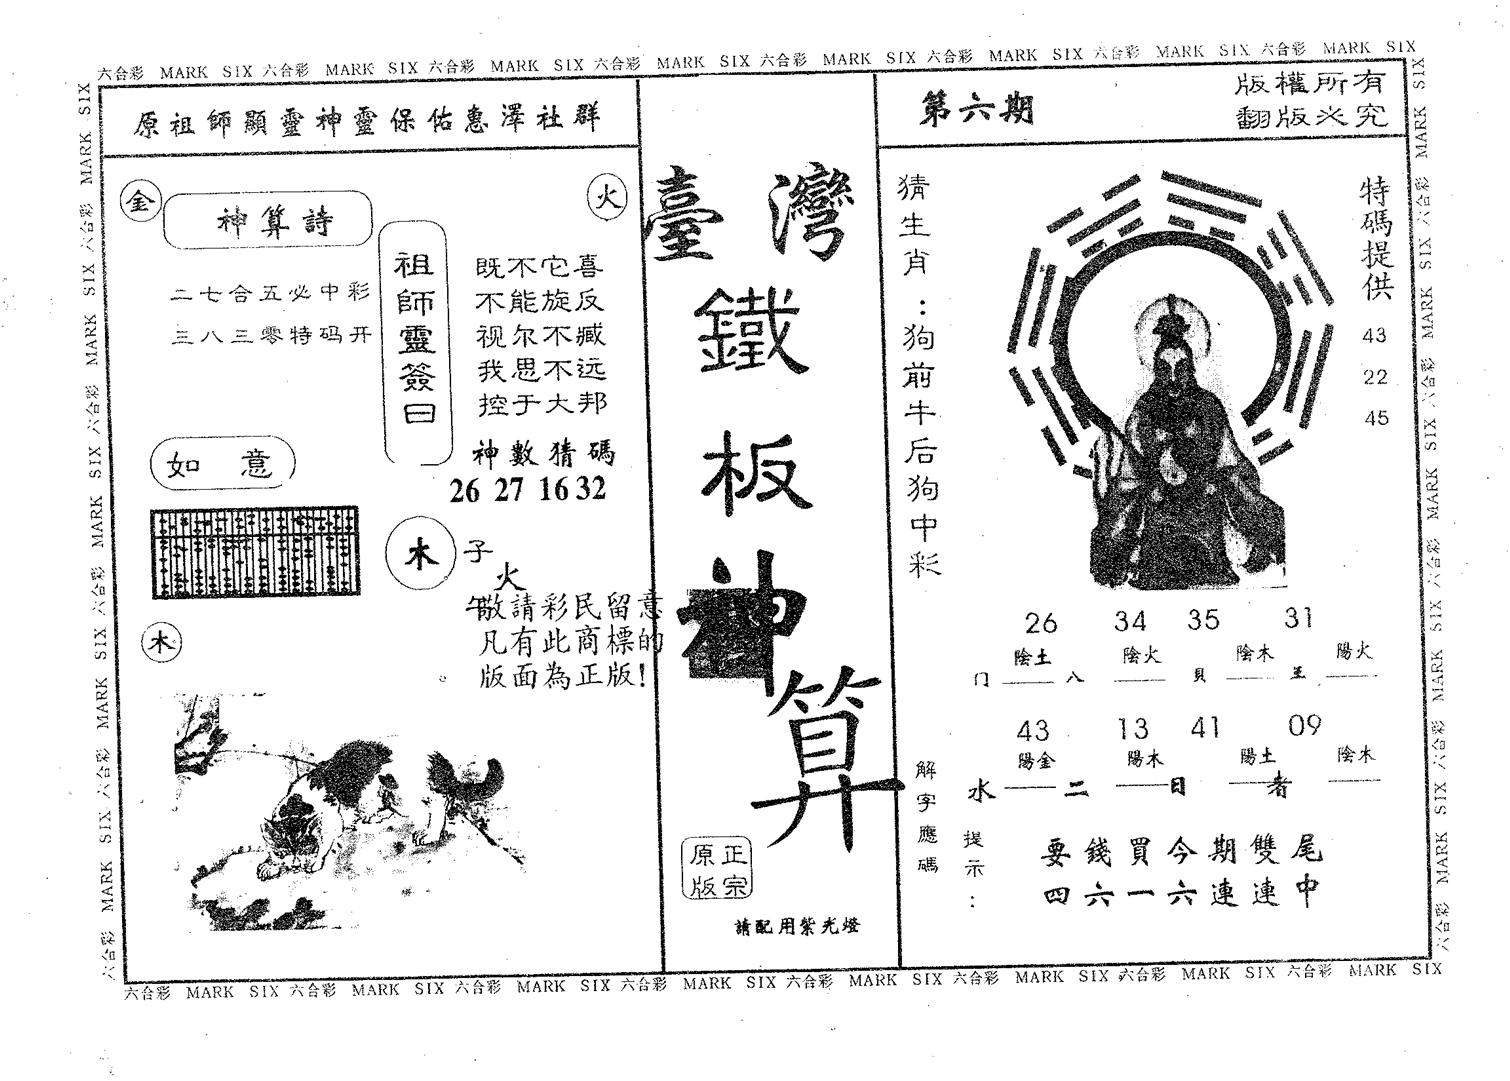 六合彩 MARK SIX 六合彩 MARK SIX 六合彩 MARK SIX 六合彩 MARK SIX 六合彩 MARK SIX 六合彩 MARK SIX 六合彩 MARK SIX 六合彩 MARK SIX
原祖師顯靈神靈保佑惠澤社群
金
火
神算詩
二七合五必中彩
三八三零特码开
祖師靈簽曰
既不它喜
不能旋反
视尔不臧
我思不远
控于大邦
神數猜碼
26 27 16 32
如 意
木
子
火
午
敬請彩民留意
凡有此商標的
版面為正版!
木
臺灣
鐵
板
神
算
正宗
原版
請配用紫光燈
第六期
版權所有
翻版必究
猜生肖:狗前牛后狗中彩
特碼提供
43
22
45
26 34 35 31
陰土 陰火 陰木 陽火
门 八 貝 王
43 13 41 09
陽金 陽木 陽土 陰木
水 二 日 者
解字應碼
提示:
要錢買今期雙尾
四六一六連連中
六合彩 MARK SIX 六合彩 MARK SIX 六合彩 MARK SIX 六合彩 MARK SIX 六合彩 MARK SIX 六合彩 MARK SIX 六合彩 MARK SIX 六合彩 MARK SIX
六合彩 MARK SIX 六合彩 MARK SIX 六合彩 MARK SIX 六合彩 MARK SIX 六合彩 MARK SIX
六合彩 MARK SIX 六合彩 MARK SIX 六合彩 MARK SIX 六合彩 MARK SIX 六合彩 MARK SIX